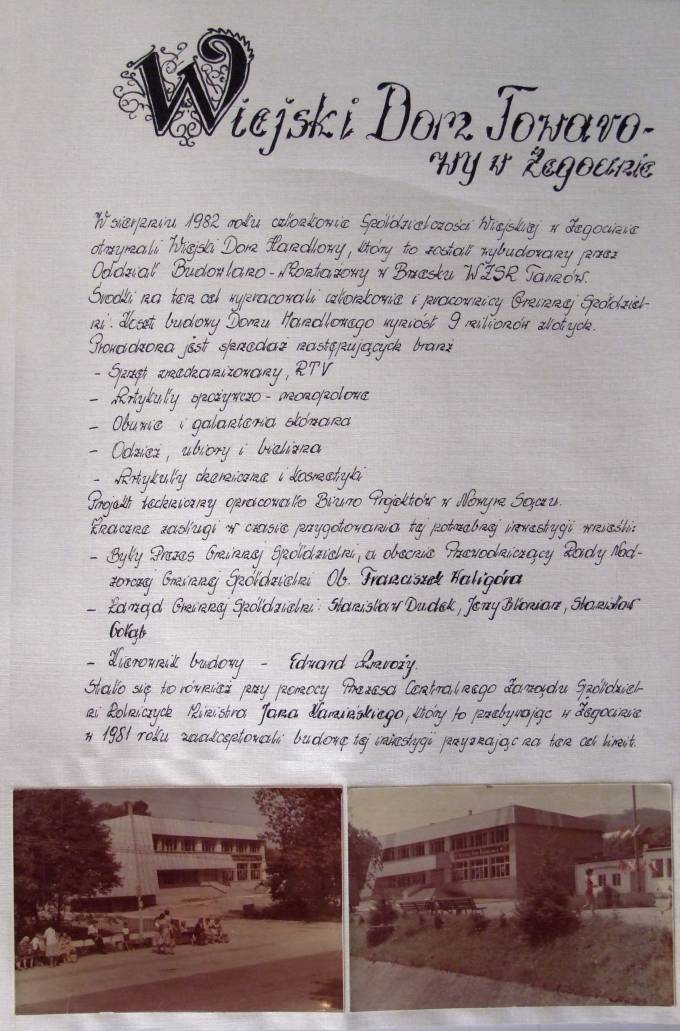 Wiejski Dom Towaro-
wy w Żegocinie
W sierpniu 1982 roku członkowie Spółdzielczości Wiejskiej w Żegocinie
otrzymali Wiejski Dom Handlowy, który to został wybudowany przez
Oddział Budowlano-Montażowy w Brzesku WZSR Tarnów.
Środki na ten cel wypracowali członkowie i pracownicy Gminnej Spółdziel-
ni. Koszt budowy Domu Handlowego wyniósł 9 milionów złotych.
Prowadzona jest sprzedaż następujących branż
- Sprzęt zmechanizowany, RTV
- Artykuły spożywczo-monopolowe
- Obuwie i galanteria skórzana
- Odzież, ubiory i bielizna
- Artykuły chemiczne i kosmetyki
Projekt techniczny opracowało Biuro Projektów w Nowym Sączu.
Znaczne zasługi w czasie przygotowania tej potrzebnej inwestycji wnieśli:
- Były Prezes Gminnej Spółdzielni, a obecnie Przewodniczący Rady Nad-
zorczej Gminnej Spółdzielni Ob. Franciszek Kaligóra
- Zarząd Gminnej Spółdzielni: Stanisław Dudek, Jerzy Błoniarz, Stanisław
Gołąb
- Kierownik budowy - Edward
Stało się to również przy pomocy Prezesa Centralnego Zarządu Spółdziel-
ni Rolniczych Ministra Jana Kamińskiego, który to przebywając w Żegocinie
w 1981 roku zaakceptował budowę tej inwestycji przyznając na ten cel limit.